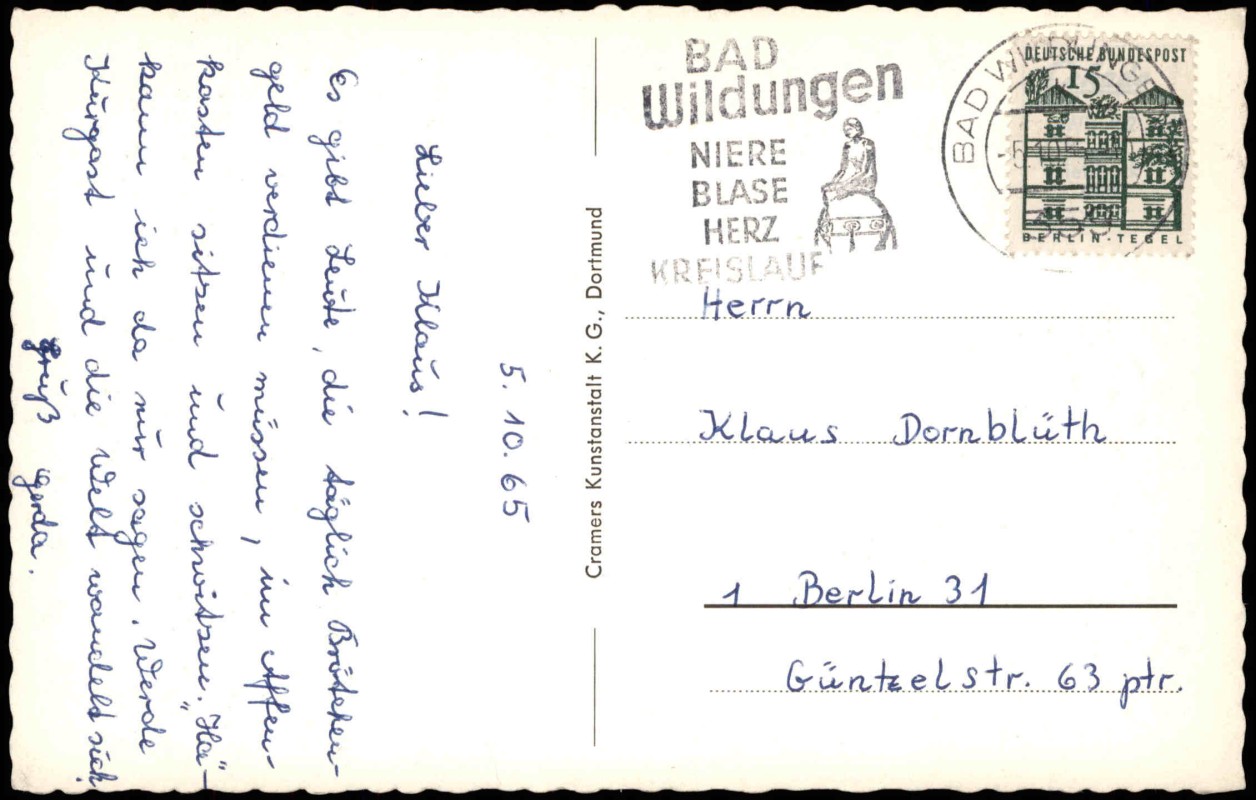 5. 10. 65
Lieber Klaus!
Es gibt Leute, die täglich Brötchen-
geld verdienen müssen, im Affen-
kasten sitzen und schwitzen. „Ha"-
kann ich da nur sagen. Werde
Kurgast und die Welt wandelt sich!
Gruß Gerda.
Cramers Kunstanstalt K. G., Dortmund
BAD
Wildungen
NIERE
BLASE
HERZ
KREISLAUF
BAD WILDUNGEN
-5.10.65
DEUTSCHE BUNDESPOST
15
BERLIN-TEGEL
Herrn
Klaus Dornblüth
1 Berlin 31
Güntzelstr. 63 ptr.